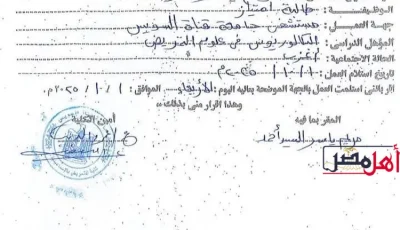 الوظيفــة : طالبة امتياز
جهة العمــل : مستشفى جامعة قناة السويس
المؤهل الدراسى : البكالوريوس فى علوم التمريض
الحالة الاجتماعية :
تاريخ استلام العمل : ١ / ١٠ / ٢٠٢٥م
اقر باننى استلمت العمل بالجهة الموضحة بعاليه اليوم : الأربعاء الموافق : ١ / ١٠ / ٢٠٢٥م
وهذا اقرار منى بذلك
المقر بما فيه
أمين الكلية
مريم ياسر السيد أحمد
أهل مصر